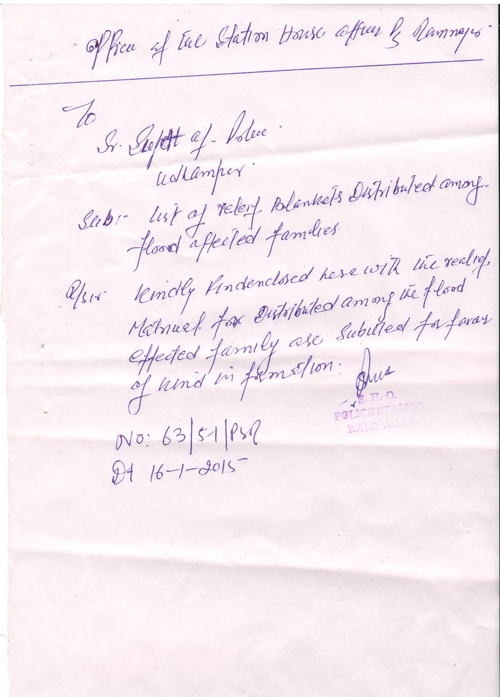 Office of the Station House officer PS Ramnagar
To
Sr. Supdtt of Police
Udhampur.
Sub:- List of releif Blankets Distributed among
flood affected families
R/sir Kindly Findenclosed here with the realief
for Distributed among the flood
effected family are Submitted for favour
of kind in formation:
S. H. O.
POLICE STATION
RAMNAGAR
NO: 63/51/PSR
Dt 16-1-2015